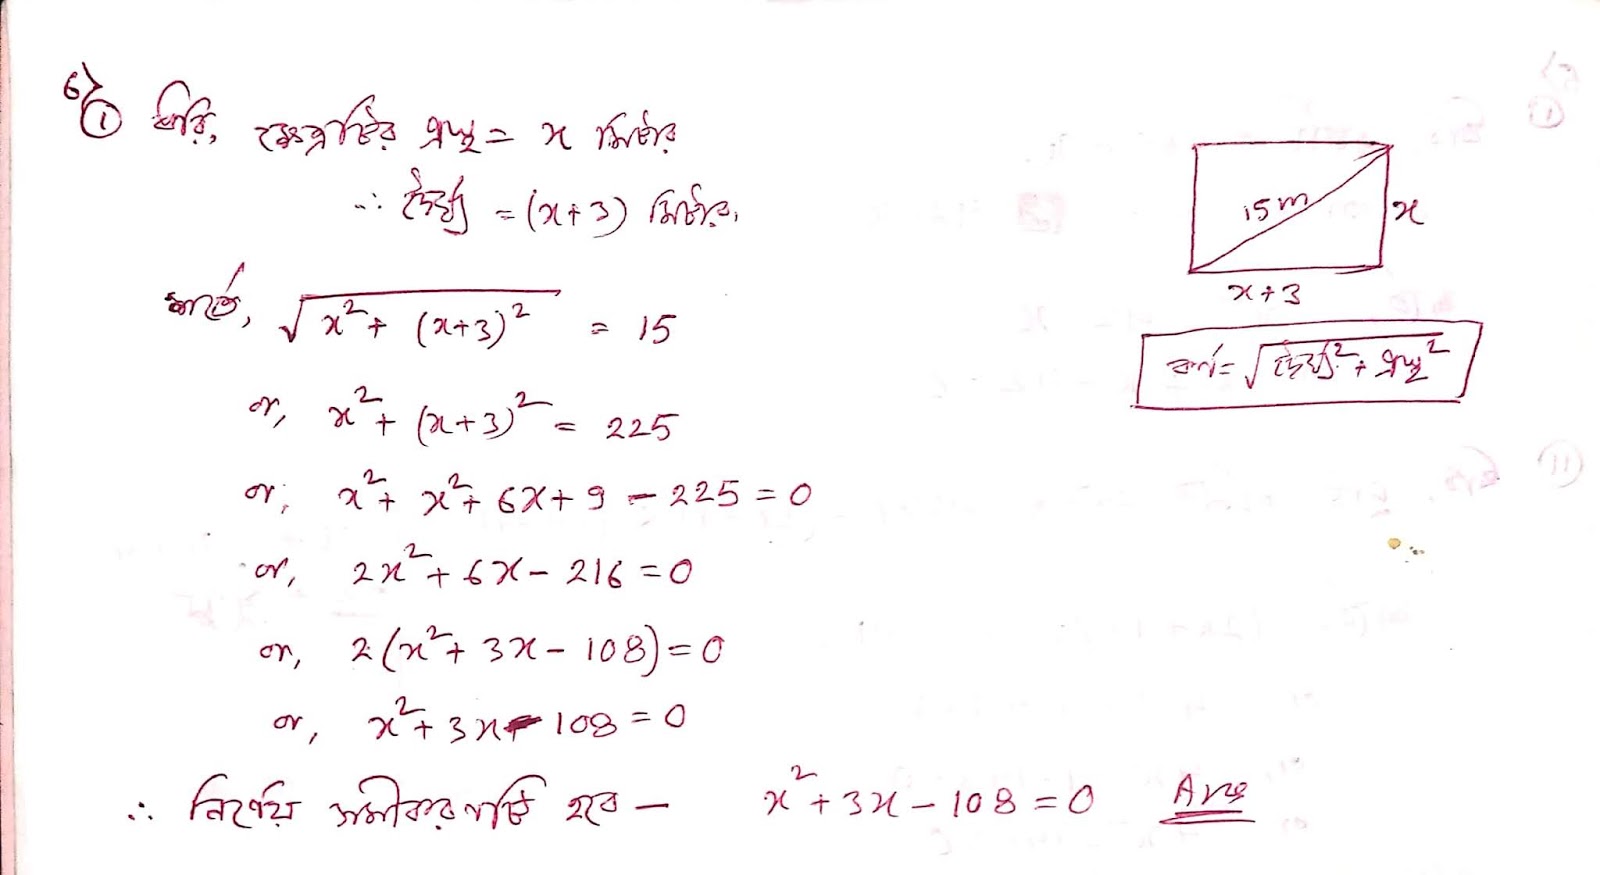 6) (i) ধরি, ক্ষেত্রটির প্রস্থ = x মিটার
∴ দৈর্ঘ্য = (x+3) মিটার,
শর্তে, √(x² + (x+3)²) = 15
or, x² + (x+3)² = 225
or, x² + x² + 6x + 9 - 225 = 0
or, 2x² + 6x - 216 = 0
or, 2(x² + 3x - 108) = 0
or, x² + 3x - 108 = 0
∴ নির্ণেয় সমীকরণটি হবে — x² + 3x - 108 = 0 Ans
15m
x
x+3
কর্ণ = √(দৈর্ঘ্য² + প্রস্থ²)